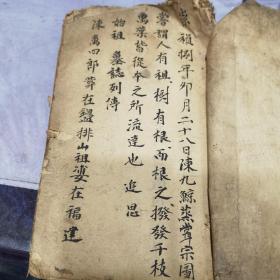 禎捌年卯月二十八日陳九鯨蒸嘗宗圖
嘗謂人有祖樹有根而根之撥發千枝
萬葉皆從本之所流達也追思
始祖墓誌列傳
陳萬四郎葬在盤排山祖婆在福建